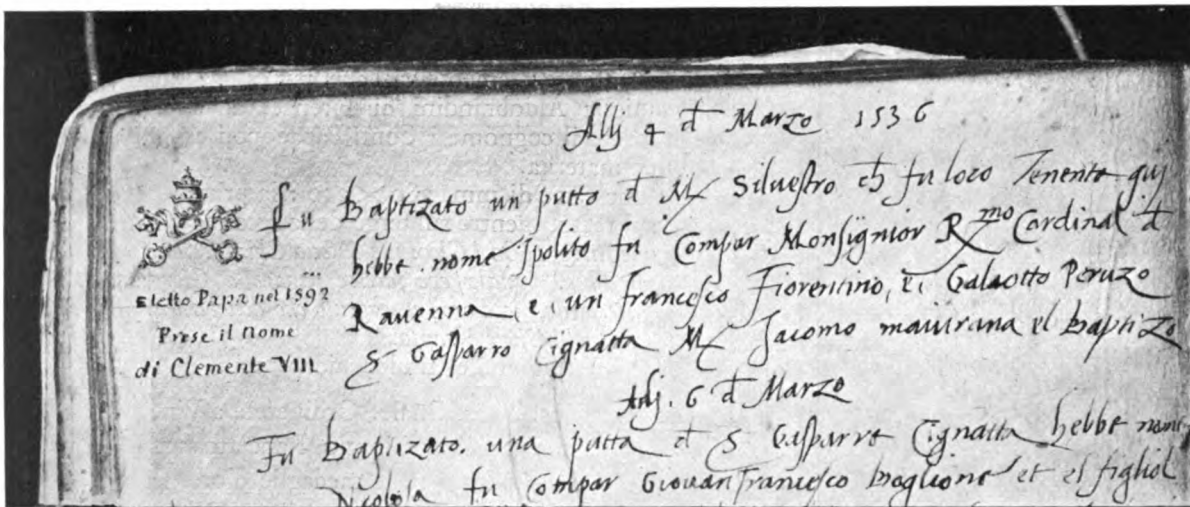 Allj 4 d Marzo 1536
Fu Baptizato un putto d M Silvestro ch fu loco Tenente quj
hebbe nome Ipolito fu Compar Monsignior R.mo Cardinal d
Ravenna, e, un francesco Fiorentino, et Galaotto Peruzo
S Gasparro Cignatta M Jacomo el Baptizo
Eletto Papa nel 1592
Prese il nome
di Clemente VIII
Allj. 6 d Marzo
Fu Baptizato. una putta d S Gasparre Cignatta hebbe nome
Nicolosa fu Compar Giovan francesco Baglione et el figliol